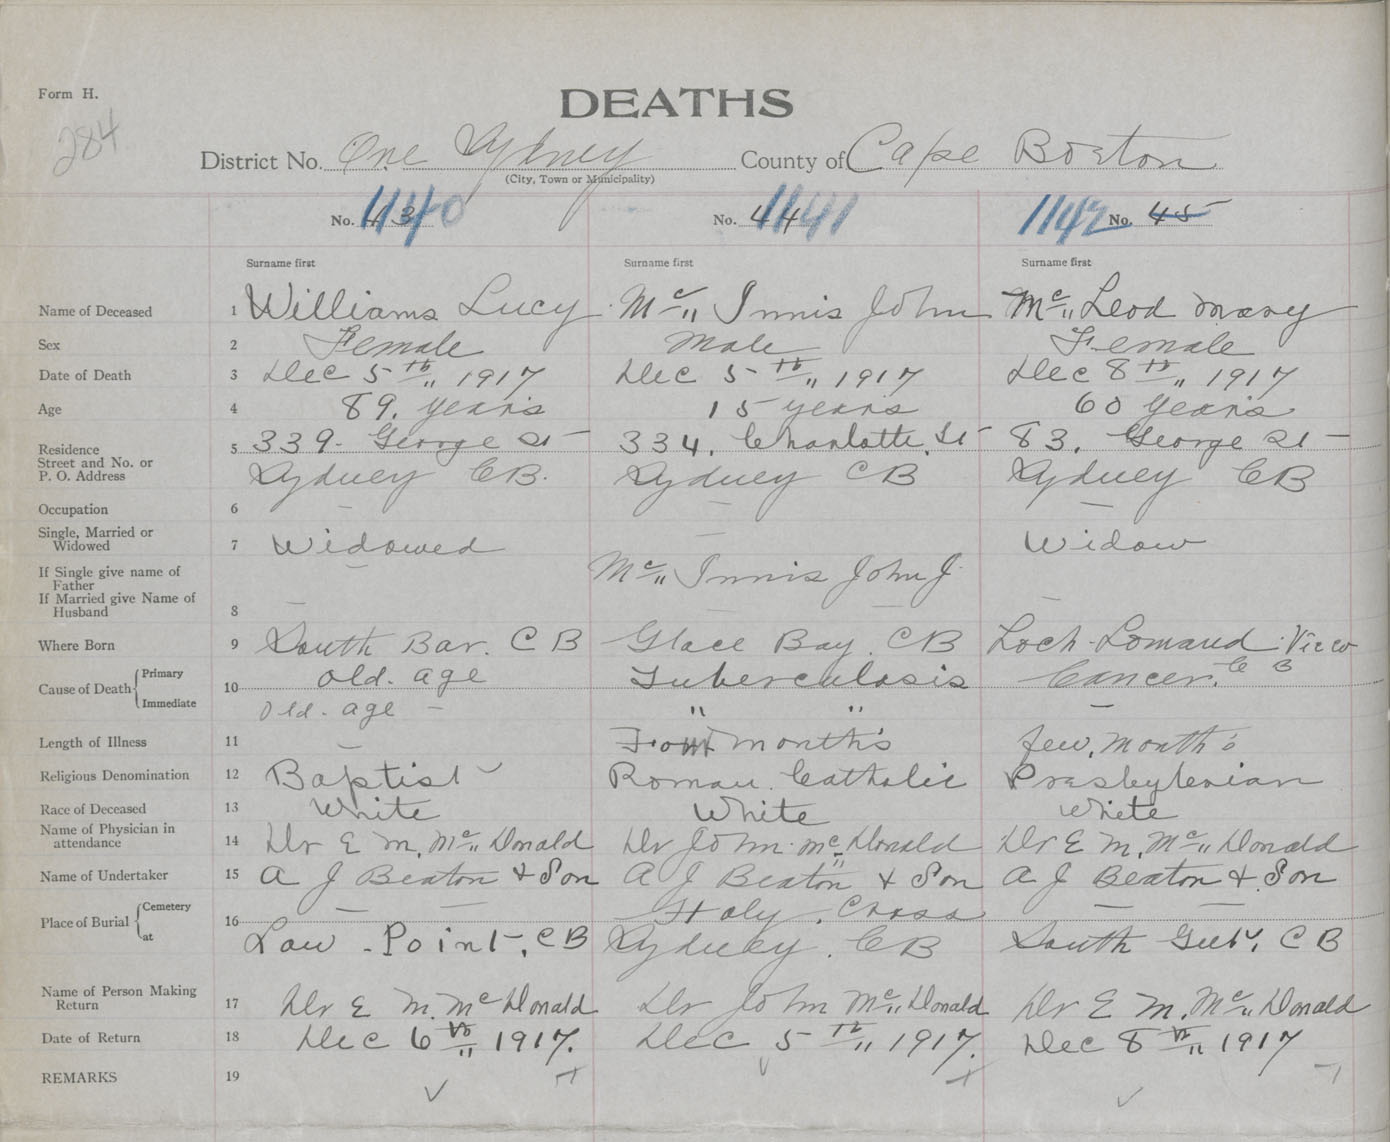 Form H.
284
DEATHS
District No. One Sydney County of Cape Boston
(City, Town or Municipality)
No. 43 1140 No. 44 1141 1142 No. 45
Surname first Surname first Surname first
Name of Deceased 1 Williams Lucy Mc Innis John Mc Leod Mary
Sex 2 Female Male Female
Date of Death 3 Dec 5th 1917 Dec 5th 1917 Dec 8th 1917
Age 4 89. years 15 years 60 years
Residence 5 339- George St 334, Charlotte St 83, George St
Street and No. or
P. O. Address Sydney CB. Sydney CB Sydney CB
Occupation 6 — — —
Single, Married or
Widowed 7 Widowed — Widow
If Single give name of Mc Innis John J.
Father
If Married give Name of
Husband 8 — — — —
Where Born 9 South Bar. CB Glace Bay. CB Loch Lomand View
C B
Cause of Death Primary 10 old. age Tuberculosis Cancer.
Immediate old. age — " " —
Length of Illness 11 — months few. months
Religious Denomination 12 Baptist Roman Catholic Presbyterian
Race of Deceased 13 White White White
Name of Physician in
attendance 14 Dr E M. Mc Donald Dr John Mc Donald Dr E M. Mc Donald
Name of Undertaker 15 A J Beaton & Son A J Beaton & Son A J Beaton & Son
Place of Burial Cemetery 16 — — Holy Cross — —
at Low - Point, CB Sydney. CB South CB
Name of Person Making
Return 17 Dr E M. Mc Donald Dr John Mc Donald Dr E M. Mc Donald
Date of Return 18 Dec 6th 1917. Dec 5th 1917. Dec 8th 1917
REMARKS 19